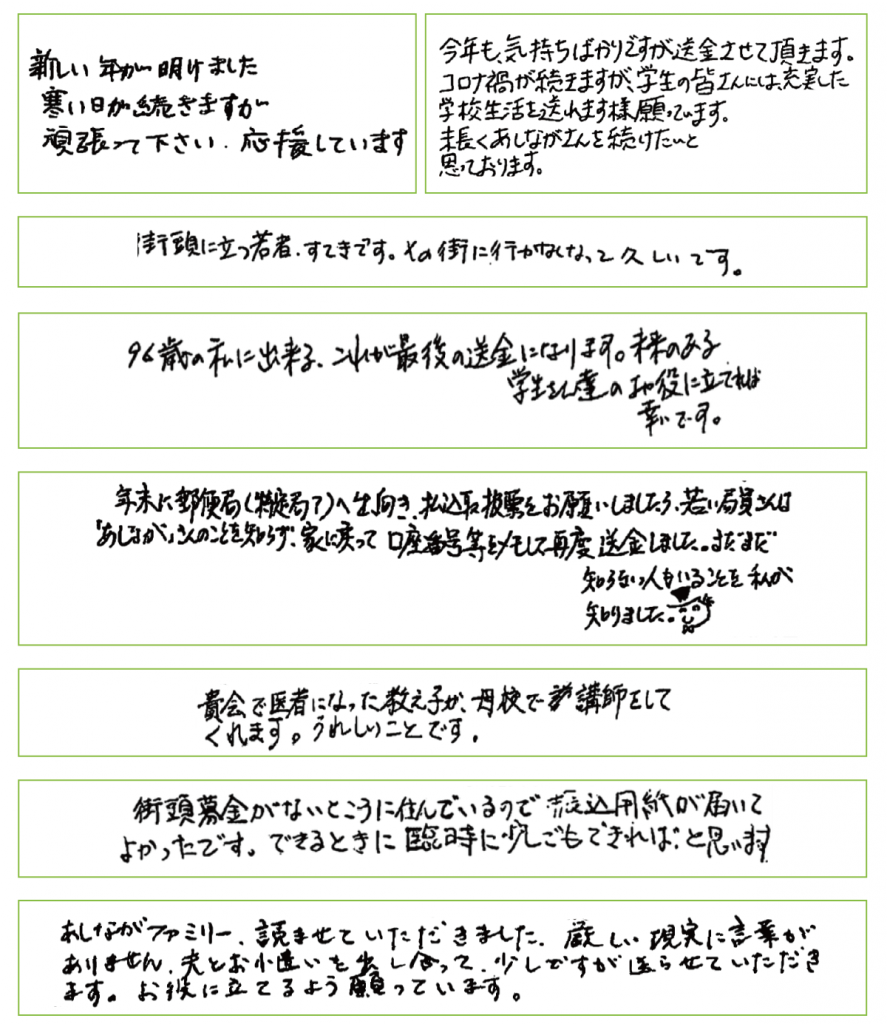 新しい年が明けました
寒い日が続きますが
頑張って下さい．応援しています
今年も、気持ちばかりですが送金させて頂きます。
コロナ禍が続きますが、学生の皆さんには、充実した
学校生活を送れます様願っています。
末長くあしながさんを続けたいと
思っております。
街頭に立つ若者、すてきです。その街に行かなくなって久しいです。
96歳の私に出来る、これが最後の送金になります。未来のある
学生さん達のお役に立てれば
幸いです。
年末に郵便局(特定局?)へ出向き、払込取扱票をお願いしましたら、若い局員さんは
「あしなが」さんのことを知らず、家に戻って口座番号等をメモして再度送金しました。まだまだ
知らない人もいることを私が
知りました。
貴会で医者になった教え子が、母校で講師をして
くれます。うれしいことです。
街頭募金がないところに住んでいるので振込用紙が届いて
よかったです。できるときに臨時に少しでもできれば、と思います
あしながファミリー、読ませていただきました。厳しい現実に言葉が
ありません。夫とお小遣いを出し合って、少しですが送らせていただき
ます。お役に立てるよう願っています。